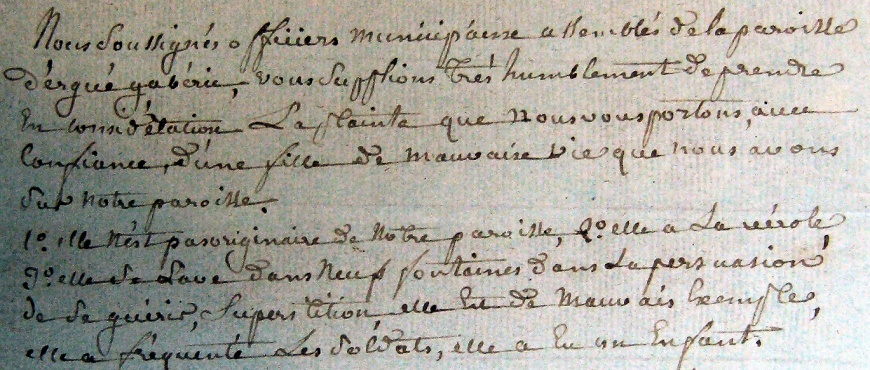 Nous soussignés officiers municipaux assemblés de la paroisse
d'ergué gabéric, vous suppions très humblement de prendre
En considération La plainte que Nous vous portons, avec
Confiance, d'une fille de mauvaise vie que nous avons
Sur notre paroisse.
1º. elle N'est pas originaire de Notre paroisse, 2º. elle a La vérole
3º. elle se Lave dans Neuf fontaines dans La persuasion
de se guérir, Superstition, elle Est de Mauvais Exemple,
elle a fréquenté Les Soldats, elle a Eu un Enfant.